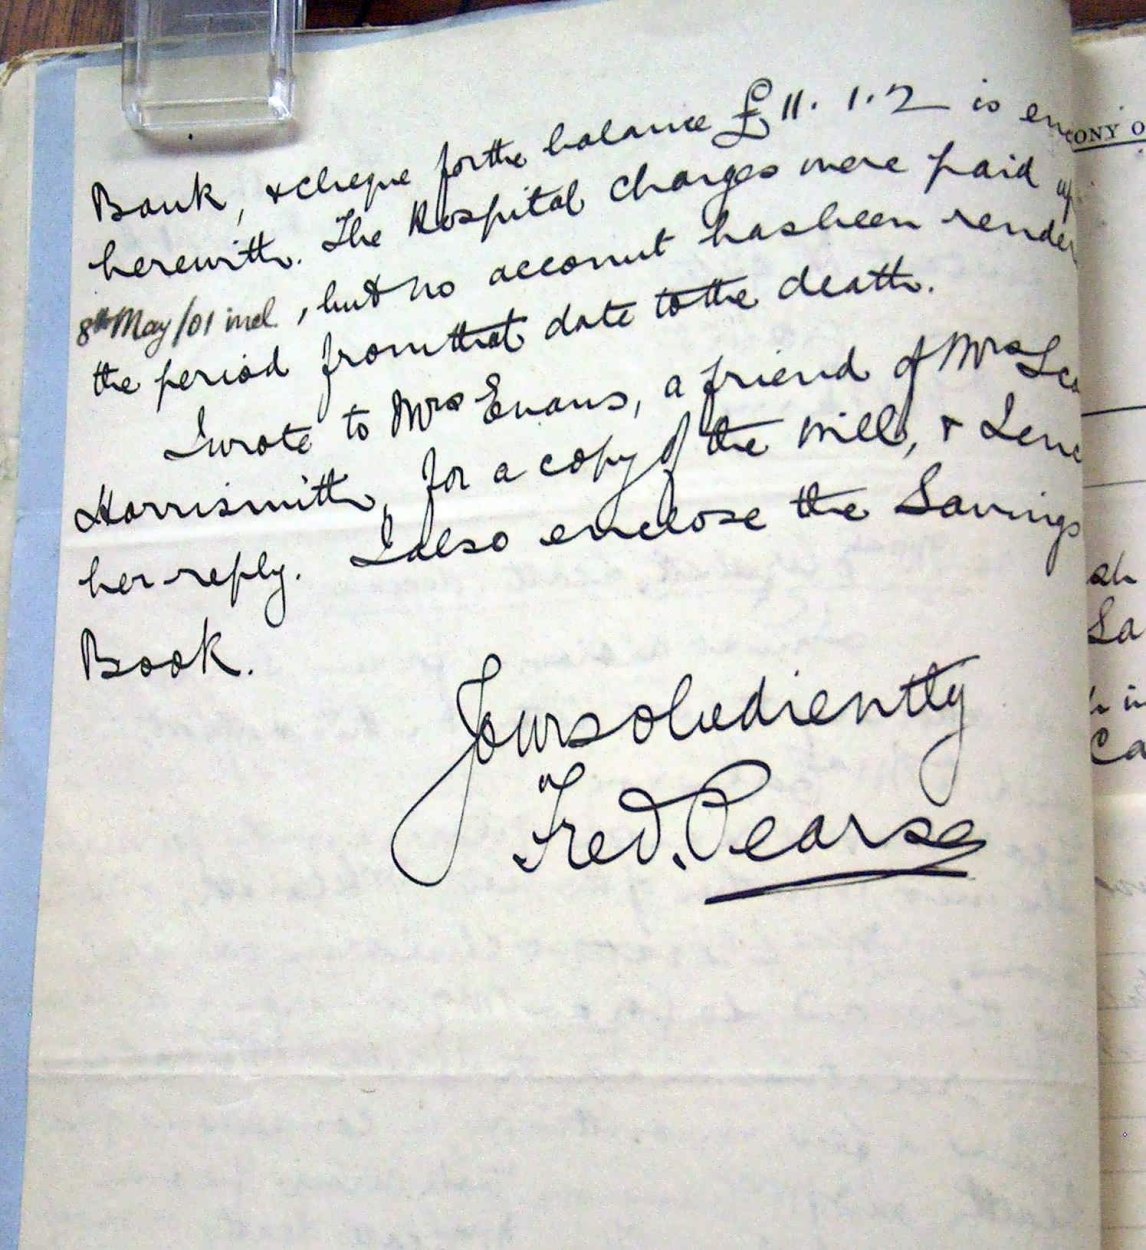 Bank, & cheque for the balance £11.1.2 is en
herewith. The Hospital charges were paid up
8th May/01 incl., but no account has been render
the period from that date to the death.
I wrote to Mrs Evans, a friend of Mrs Sco
Harrismith, for a copy of the will, & I enc
her reply. I also enclose the Savings
Book.
Yours obediently
Fred. Pearse
ONY O
sh
Sa
h i
Ca